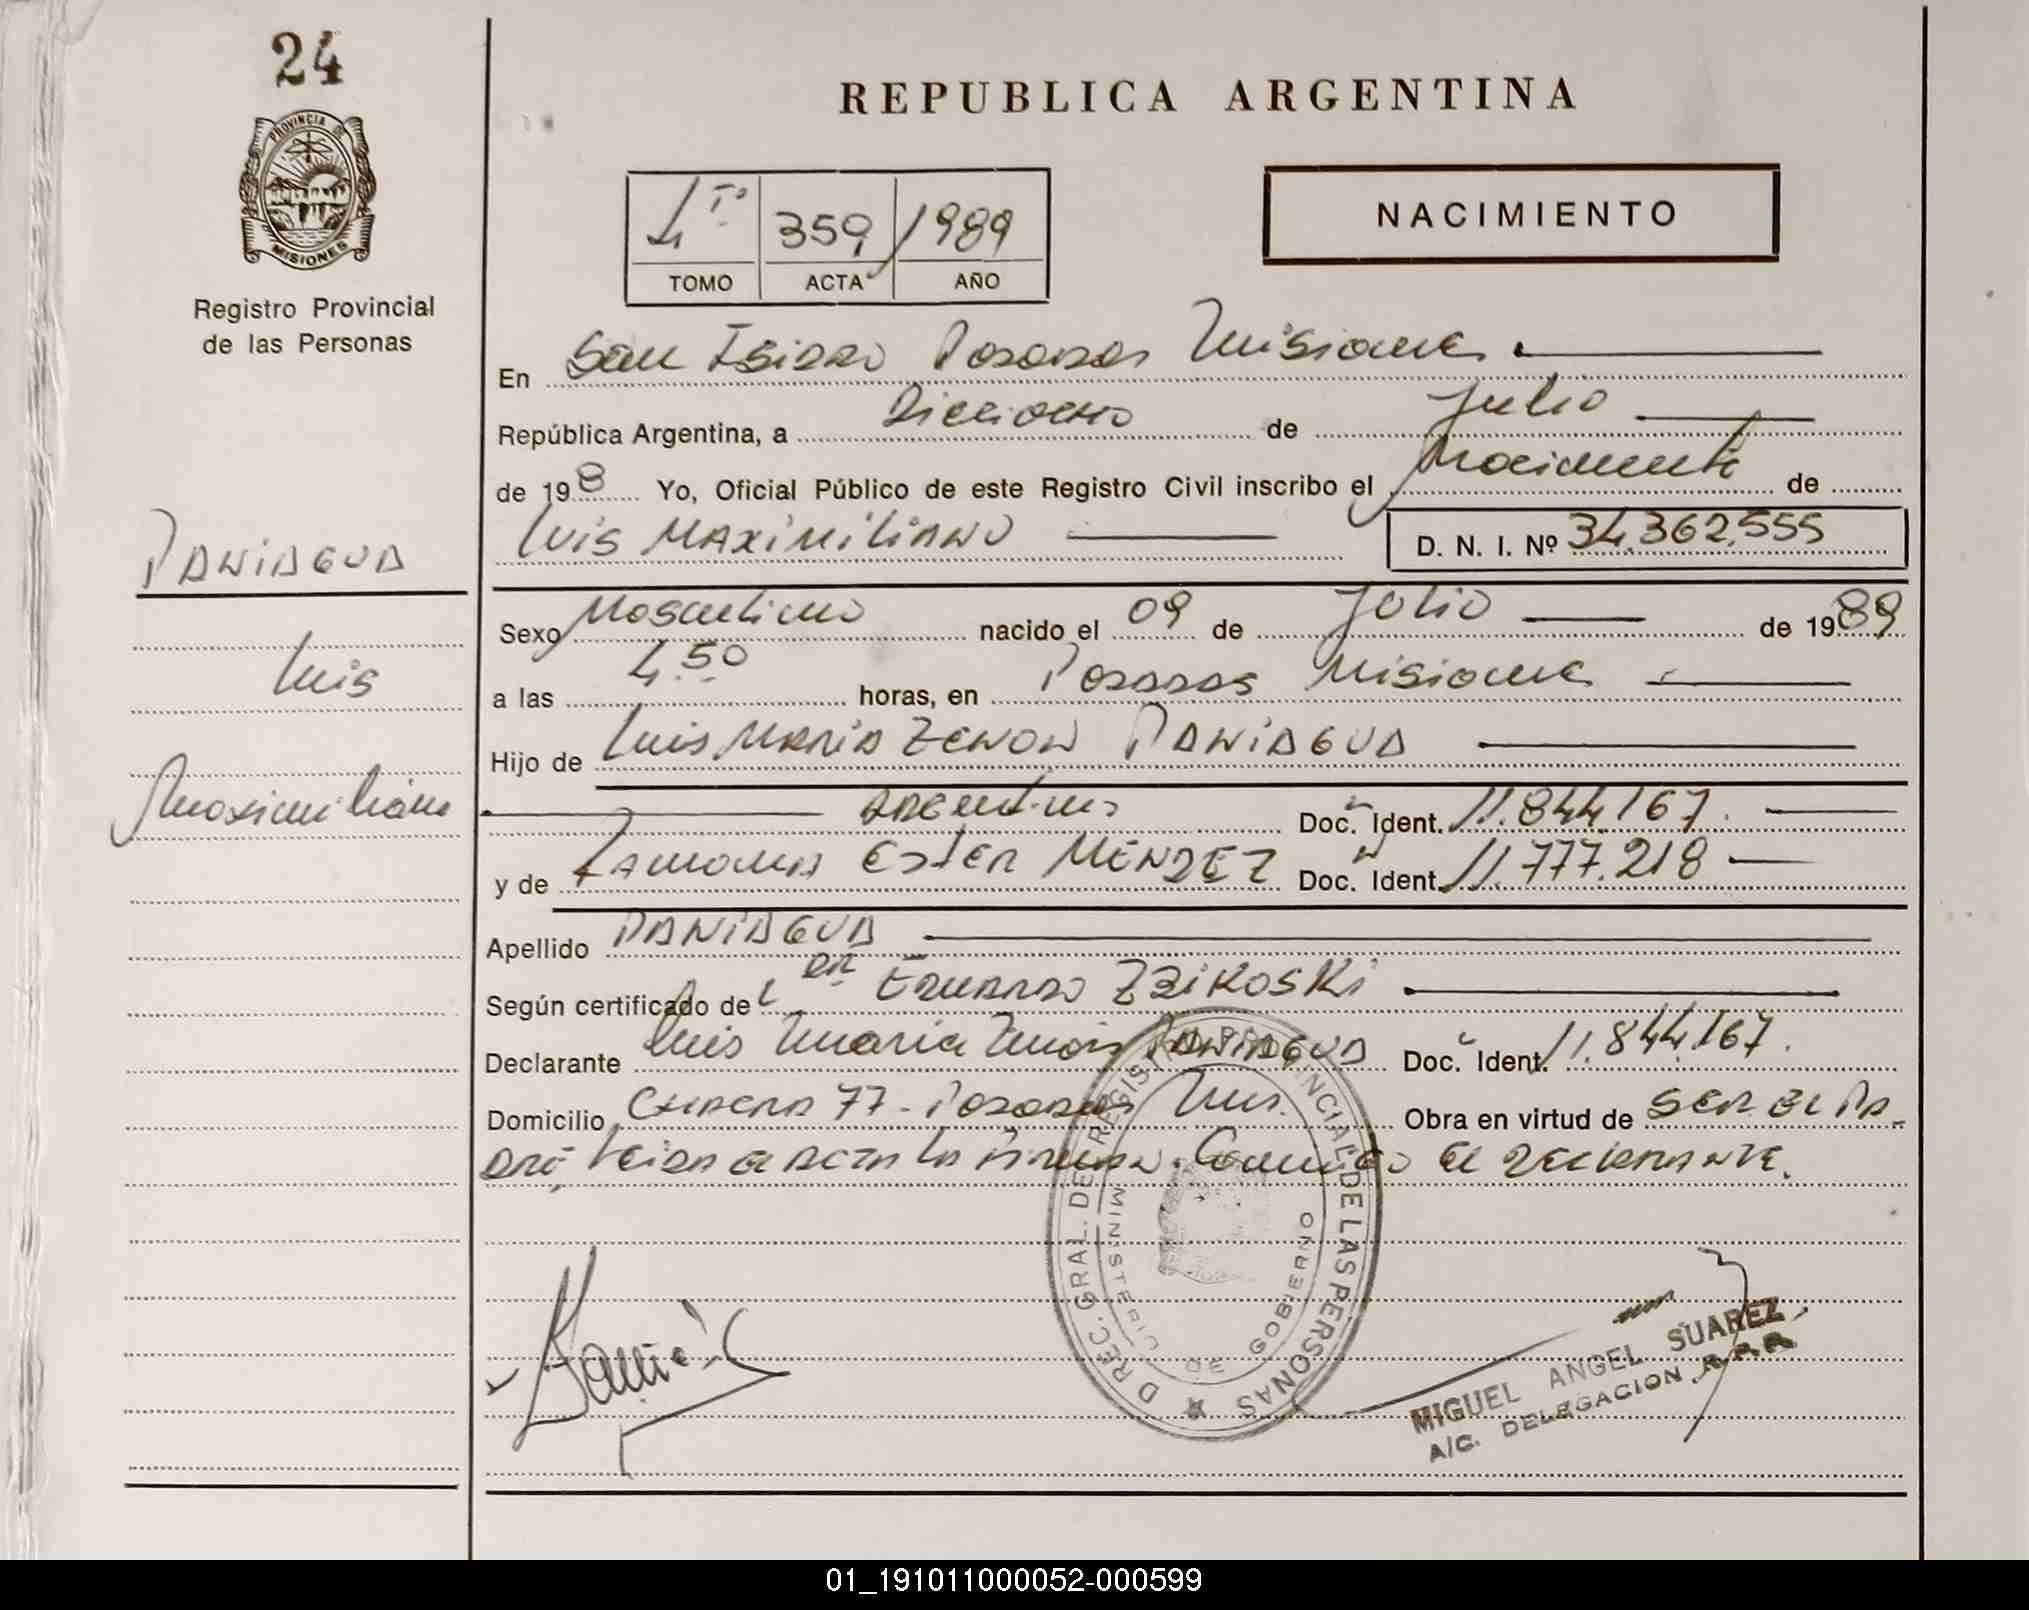 24
REPUBLICA ARGENTINA
PROVINCIA DE
MISIONES
Registro Provincial
de las Personas
4 Tº 359 1989
TOMO ACTA AÑO
NACIMIENTO
En San Isidro Posadas Misiones
República Argentina, a Dieciocho de Julio
de 198 Yo, Oficial Público de este Registro Civil inscribo el Nacimiento de
Luis MAXIMILIANO D. N. I. Nº 34.362.555
PANIAGUA
Luis
Maximiliano
Sexo Masculino nacido el 09 de Julio de 1989
a las 4.50 horas, en Posadas Misiones
Hijo de Luis MARIA ZENON PANIAGUA
Argentino Doc. Ident. 11.844.167.
y de Ramona Ester MENDEZ Doc. Ident. 11.777.218
Apellido PANIAGUA
Según certificado de Dr Eduardo
Declarante Luis Maria Zenon PANIAGUA Doc. Ident. 11.844.167.
Domicilio 77 - Posadas Mnes. Obra en virtud de ser el pa-
dre, leida el acta la firma Conmigo el declarante.
DIREC. GRAL. DE REGISTRO PROVINCIAL DE LAS PERSONAS
MINISTERIO DE GOBIERNO
MIGUEL ANGEL SUAREZ
A/C. DELEGACION
01_191011000052-000599